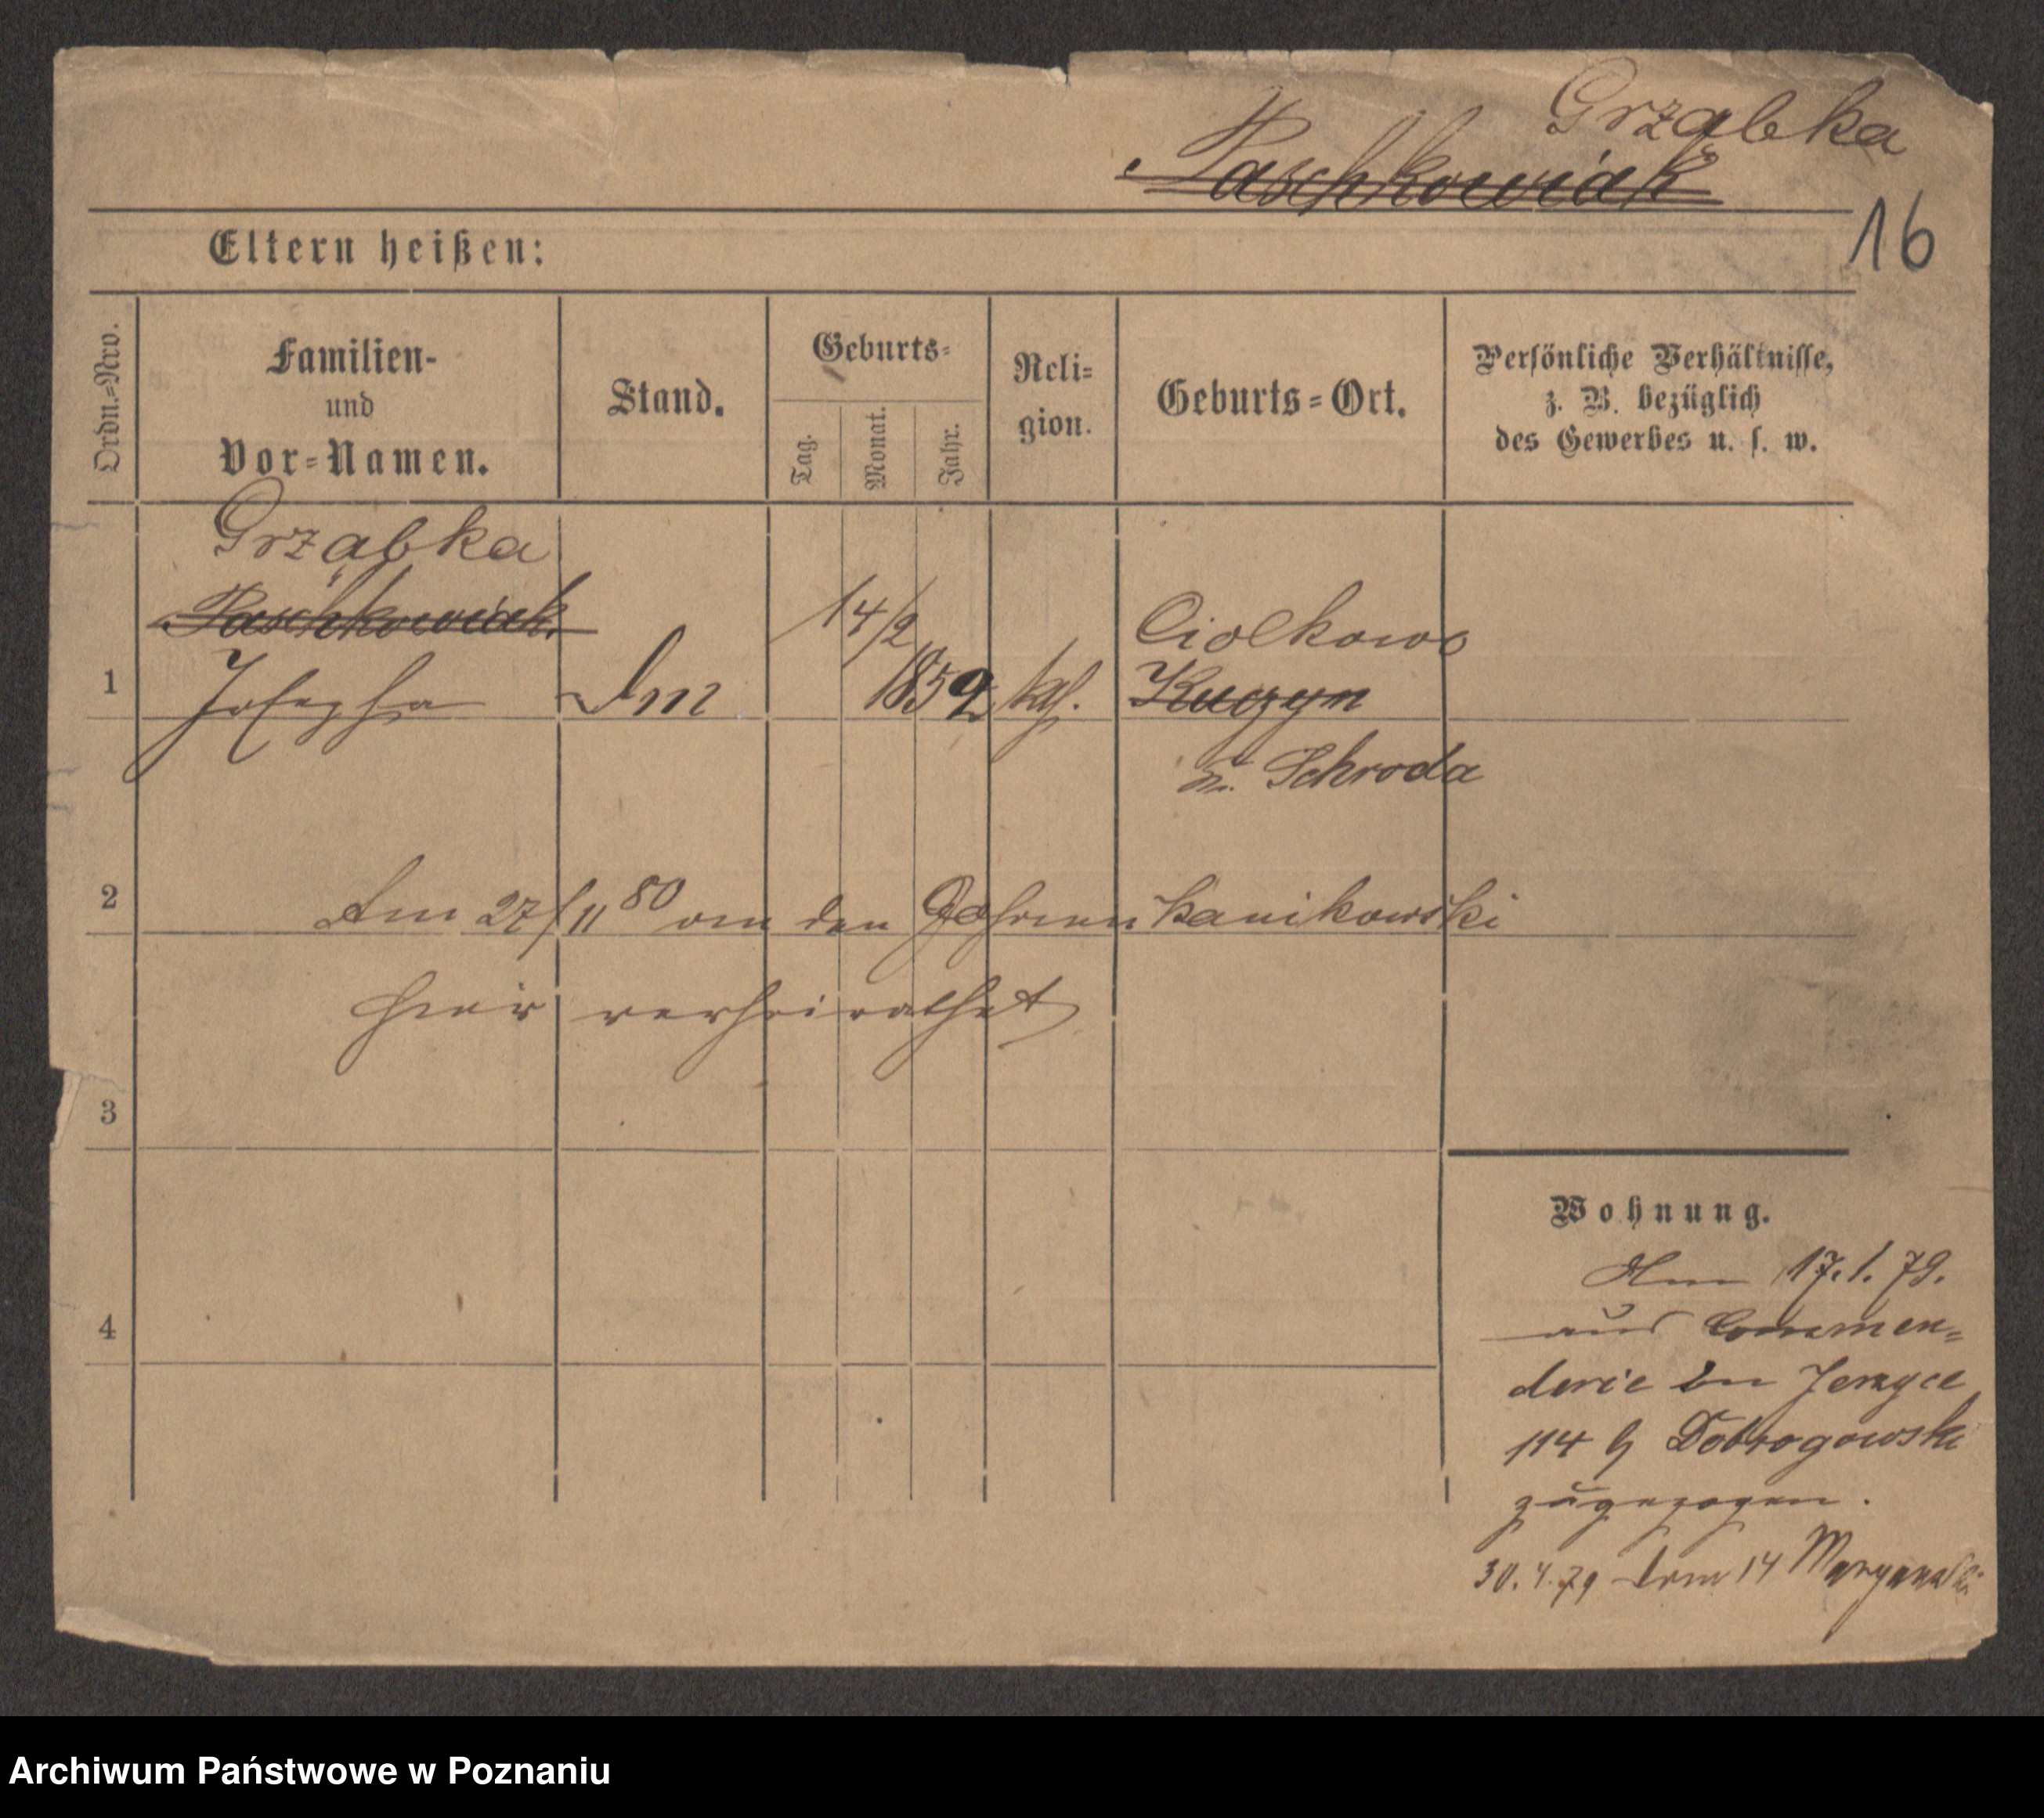 Grząbka
Paschkowiak
16
Eltern heißen:
Ordn.=Nro.
Familien-
und
Vor=Namen.
Stand.
Geburts=
Tag.
Monat.
Jahr.
Reli=
gion.
Geburts=Ort.
Persönliche Verhältnisse,
z. B. bezüglich
des Gewerbes u. s. w.
Grząbka
Paschkowiak
1 Josepha 14/2 1852 kth.
Ciolkowo
Kuczyn
Schroda
2 Am 27/11 80 an den kanikowski
hier verheirathet
3
4
Wohnung.
Am 17.1.79.
aus Commen=
derie in Jerzyce
114 b Dobrogowski
zugezogen.
30.4.79 14
Archiwum Państwowe w Poznaniu